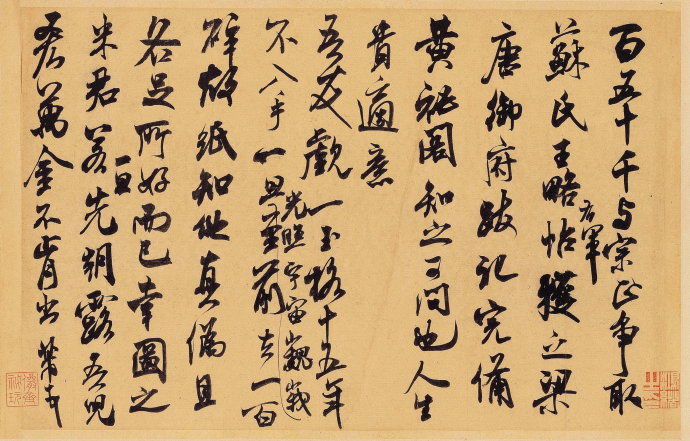 百五十千与宗正爭取
蘇氏王略帖右軍獲之梁
唐御府跋記完備
黃祕閣知之可問也人生
貴適意
吾友覷一玉格十五年
不入手一旦光照宇宙巍峩至前去一百
碎故紙知他真偽且
各足所好而已幸圖之
米君若一旦先朝露吾兒
吝萬金不肯出芾頓首